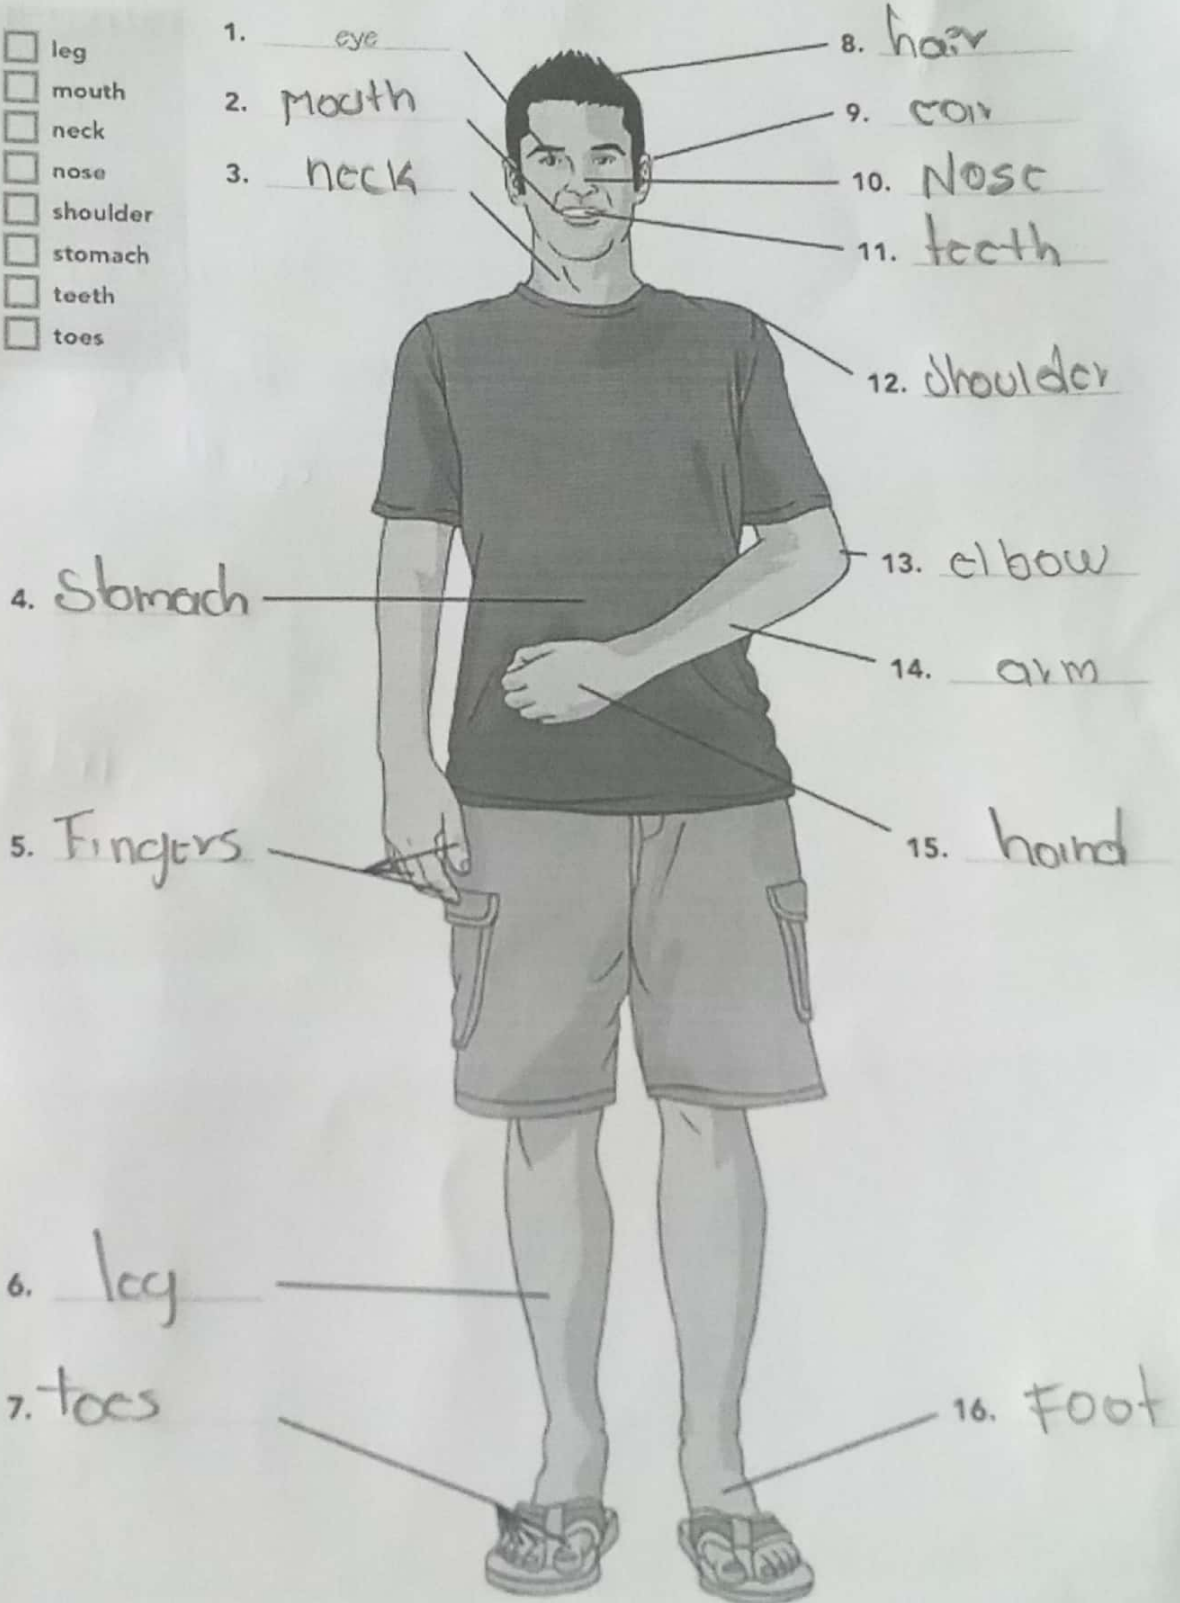 leg
mouth
neck
nose
shoulder
stomach
teeth
toes
1. eye
2. Mouth
3. neck
4. Stomach
5. Fingers
6. leg
7. toes
8. hair
9. ear
10. Nose
11. teeth
12. Shoulder
13. elbow
14. arm
15. hand
16. Foot